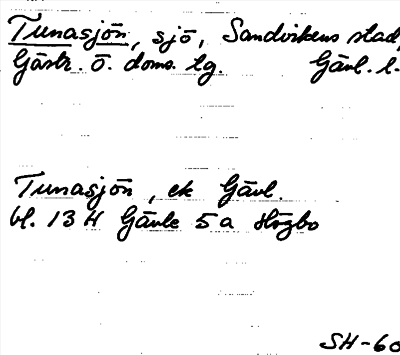 Tunasjön, sjö, Sandvikens stad,
Gästr. ö. doms. lg. Gävl. l.
Tunasjön, ek Gävl.
bl. 13 H Gävle 5 a Högbo
SH-60